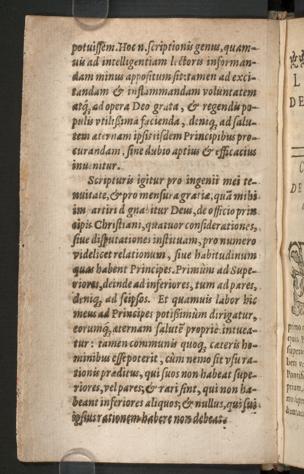 potuissem. Hoc n. scriptionis genus, quam-
uis ad intelligentiam lectoris informan-
dam minus appositum sit: tamen ad exci-
tandam & inflammandam voluntatem
atq; ad opera Deo grata, & regendis po-
pulis vtilissima facienda, deniq; ad salu-
tem æternam ipsis iisdem Principibus pro-
curandam, sine dubio aptius & efficacius
inuenitur.
Scripturis igitur pro ingenii mei te-
nuitate, & pro mensura gratiæ, quā mihi
impartiri dignabitur Deus, de officio prin
cipis Christiani, quatuor considerationes,
siue disputationes instituam, pro numero
videlicet relationum, siue habitudinum
quas habent Principes. Primùm ad Supe-
riores, deinde ad inferiores, tum ad pares,
deniq; ad seipsos. Et quamuis labor hic
meus ad Principes potissimùm dirigatur,
eorumq; æternam salutē propriè intuea-
tur: tamen communis quoq; cæteris ho-
minibus esse poterit, cùm nemo sit vsu ra-
tionis præditus, qui suos non habeat supe-
riores, vel pares; & rari sint, qui non ha-
beant inferiores aliquos; & nullus, qui sui
ipsius rationem habere non debeat.
L
DE
C
DE